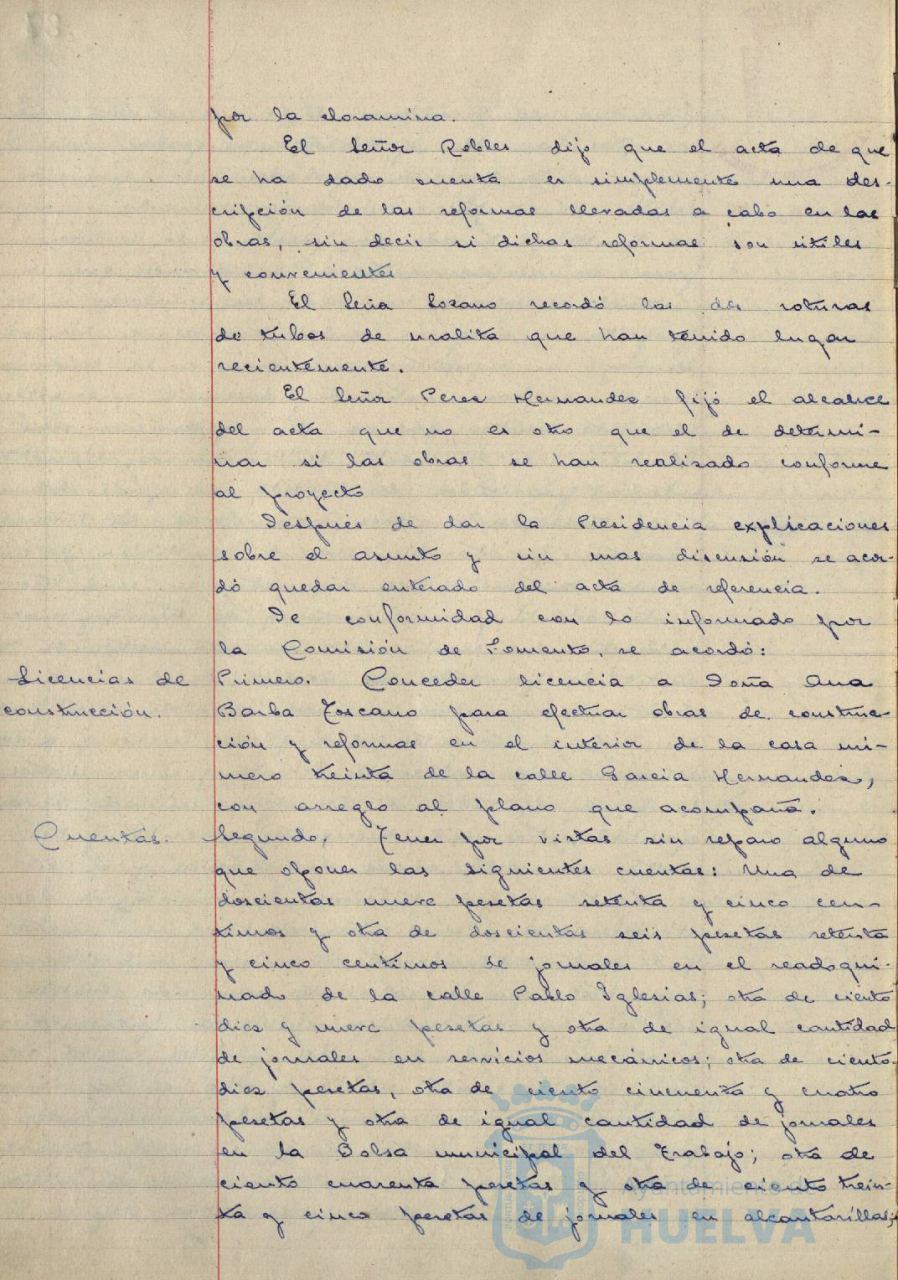 por la cloramina.
El Señor Robles dijo que el acta de que
se ha dado cuenta es simplemente una des-
cripción de las reformas llevadas a cabo en las
obras, sin decir si dichas reformas son útiles
y convenientes
El Señor Lozano recordó las dos roturas
de tubos de uralita que han tenido lugar
recientemente.
El Señor Perez Hernandez fijó el alcance
del acta que no es otro que el de determi-
nar si las obras se han realizado conforme
al proyecto
Después de dar la Presidencia explicaciones
sobre el asunto y sin mas discusión se acor-
dó quedar enterado del acta de referencia.
De conformidad con lo informado por
la Comisión de Fomento, se acordó:
Licencias de
construcción.
Primero. Conceder licencia a Doña Ana
Barba Toscano para efectuar obras de construc-
ción y reformas en el interior de la casa nú-
mero treinta de la calle Garcia Hernandez,
con arreglo al plano que acompaña.
Cuentas.
Segundo. Tener por vistas sin reparo alguno
que oponer las siguientes cuentas: Una de
doscientas nueve pesetas setenta y cinco cen-
timos y otra de doscientas seis pesetas setenta
y cinco centimos de jornales en el readoqui-
nado de la calle Pablo Iglesias; otra de ciento
diez y nueve pesetas y otra de igual cantidad
de jornales en servicios mecánicos; otra de ciento
diez pesetas, otra de ciento cincuenta y cuatro
pesetas y otra de igual cantidad de jornales
en la Bolsa municipal del Trabajo; otra de
ciento cuarenta pesetas y otra de ciento trein-
ta y cinco pesetas de jornales en alcantarillas;
Ayuntamiento de
HUELVA